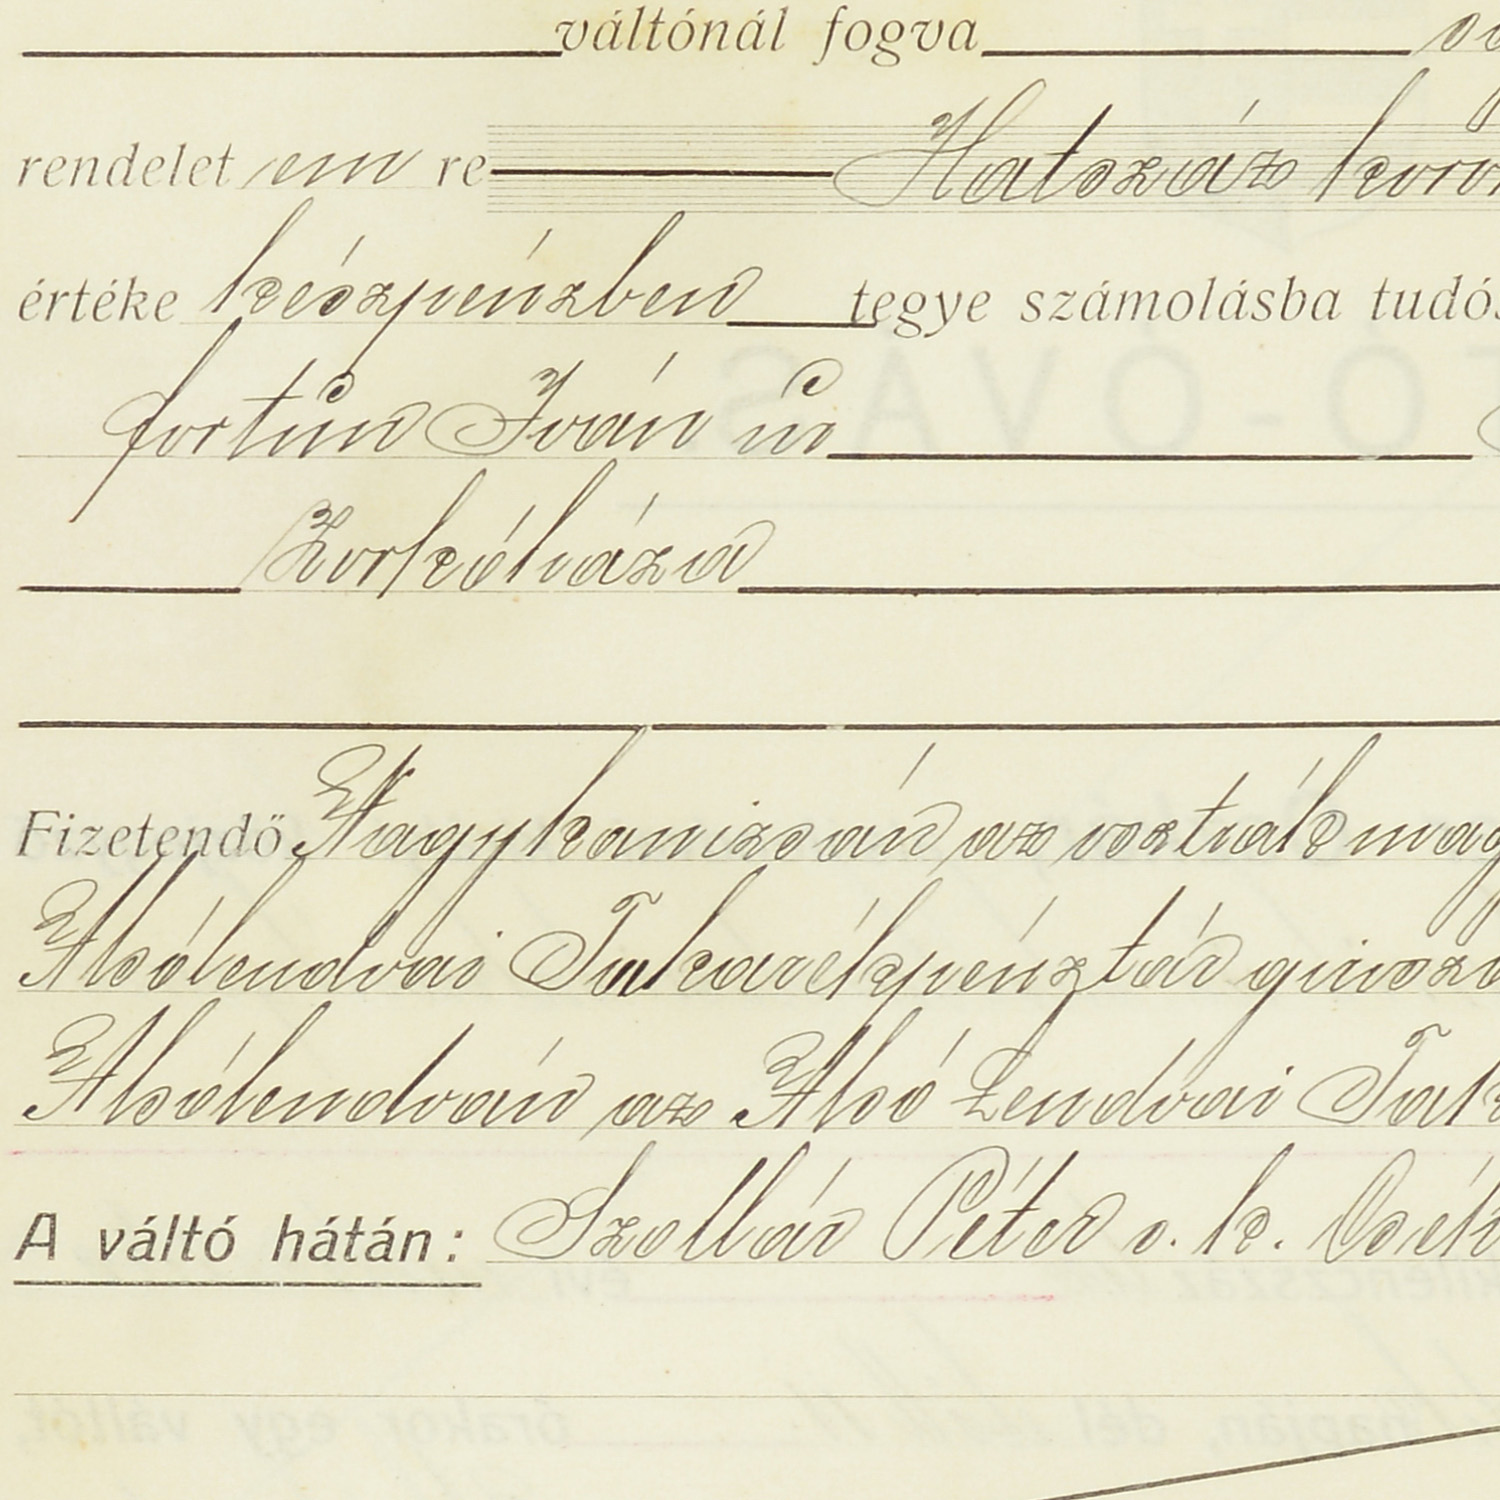 váltónál fogva
rendelet em re Hatszáz koron
értéke készpénzben tegye számolásba tudós
fortün Iván úr
Zorkóháza
Fizetendő Nagykanizsán az osztrák mag
Alsólendvai Takarékpénztár
Alsólendván az Alsó Lendvai Tak
A váltó hátán: Szollár Péter s. k.